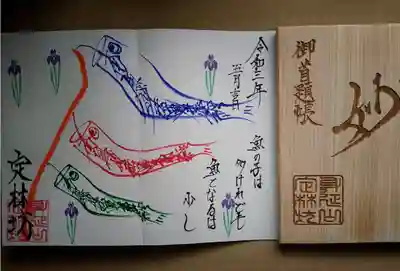 御首題帳
妙
身延山
定林坊
令和三年
五月吉日
魚の子は
多けれども
魚となるは
少し
定林坊
身延山